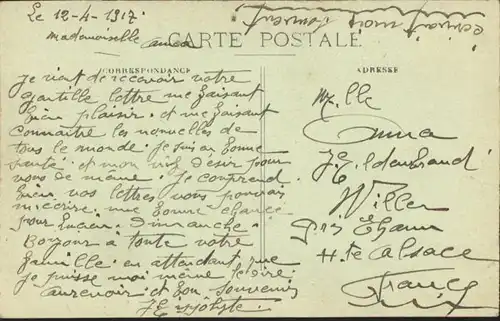 Le 12-4-1917
Mademoiselle Anna
écrivait moi souvent
CARTE POSTALE
CORRESPONDANCE
ADRESSE
Je vient de recevoir votre
gentille lettre me faisant
bien plaisir. et me faisant
connaitre les nouvelles de
tous le monde. Je suis en bonne
santé. et mon vif désir pour
vous de même. Je comprend
bien vos lettres vous pouvais
m'écrire. une bonne chance
pour Lucien. Dimanche.
Bonjour a toute votre
famille. en attendant que
je puisse moi même le dire.
aurevoir et bon souvenir
Mlle
Anna
Willer
par Thann
Hte Alsace
France